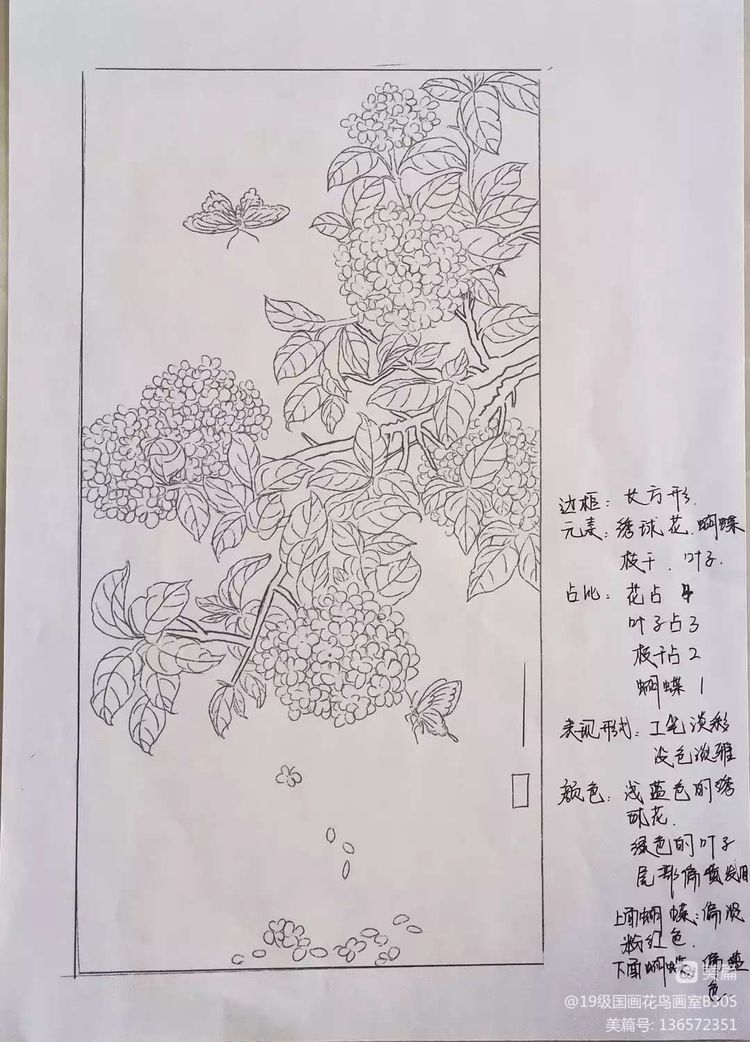 边框: 长方形.
元素: 绣球花.蝴蝶
枝干.叶子.
占比: 花占 4
叶子占3
枝干占2
蝴蝶 1
表现形式: 工笔淡彩
淡色淡雅
颜色: 浅蓝色的绣
球花.
绿色的叶子
尾部偏黄
上面蝴蝶:偏淡
粉红色.
下面蝴蝶 偏蓝
色.
美篇
@19级国画花鸟画室B305
美篇号: 136572351